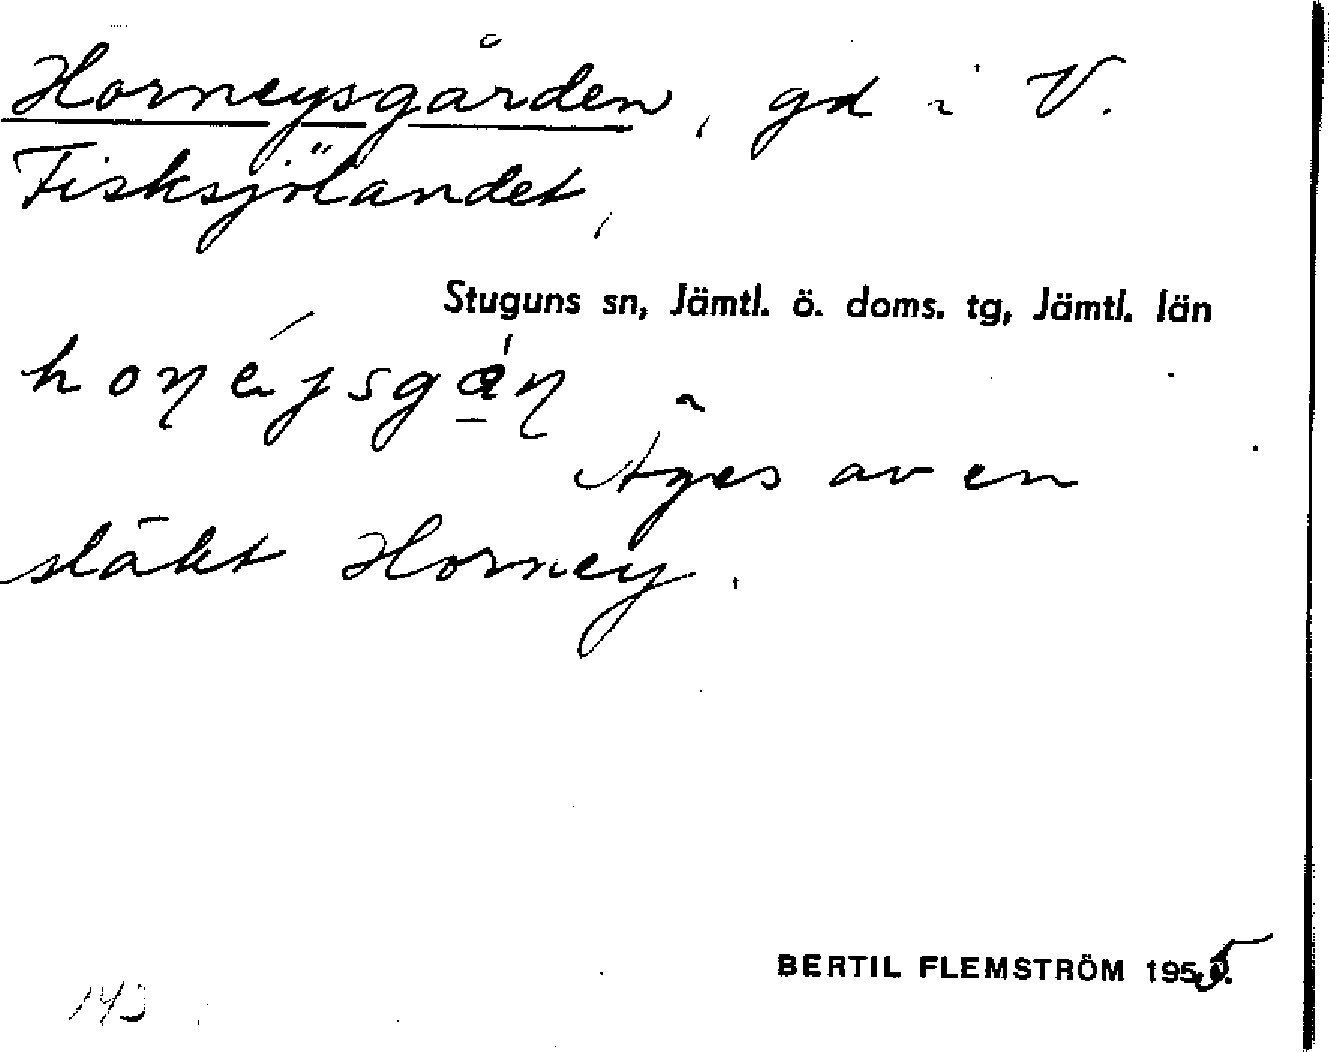 Horneysgården, gd i V.
Fisksjölandet,
Stuguns sn, Jämtl. ö. doms. tg, Jämtl. län
Äges av en
släkt Horney.
BERTIL FLEMSTRÖM 1955.
143